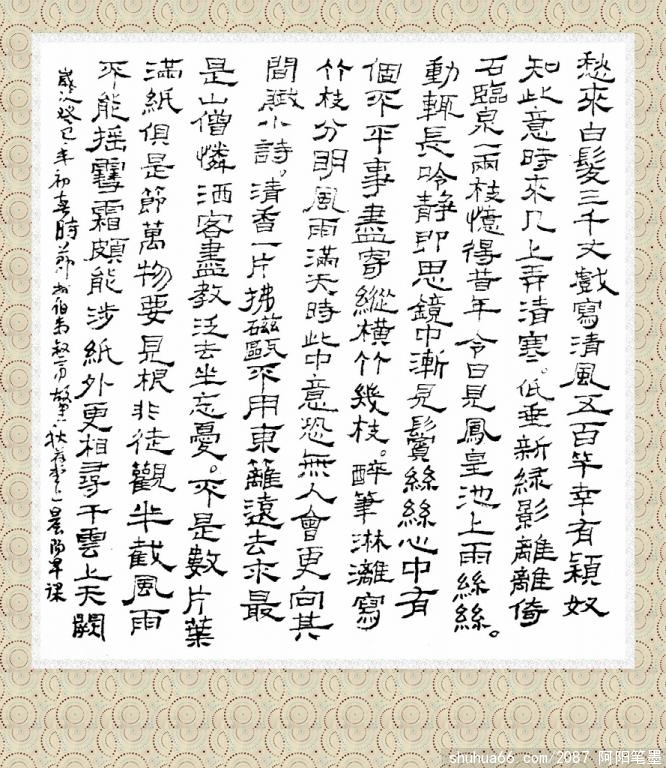 愁來白髮三千丈戲寫清風五百竿幸有穎奴
知此意時來几上弄清寒。低垂新綠影離離倚
石臨泉一兩枝憶得昔年今日見鳳皇池上雨絲絲。
動輒長吟靜即思鏡中漸見鬢絲絲心中有
個不平事盡寄縱橫竹幾枝。醉筆淋漓寫
竹枝分明風雨滿天時此中意恐無人會更向其
間賦小詩。清香一片拂磁甌不用東籬遠去求最
是山僧憐酒客盡教泛去坐忘憂。不是數片葉
滿紙俱是節萬物要見根非徒觀半截風雨
不能搖雪霜頗能涉紙外更相尋千雲上天闕
歲次癸巳年初春時節
晨陽早課
shuhua66.com/2087 阿阳笔墨